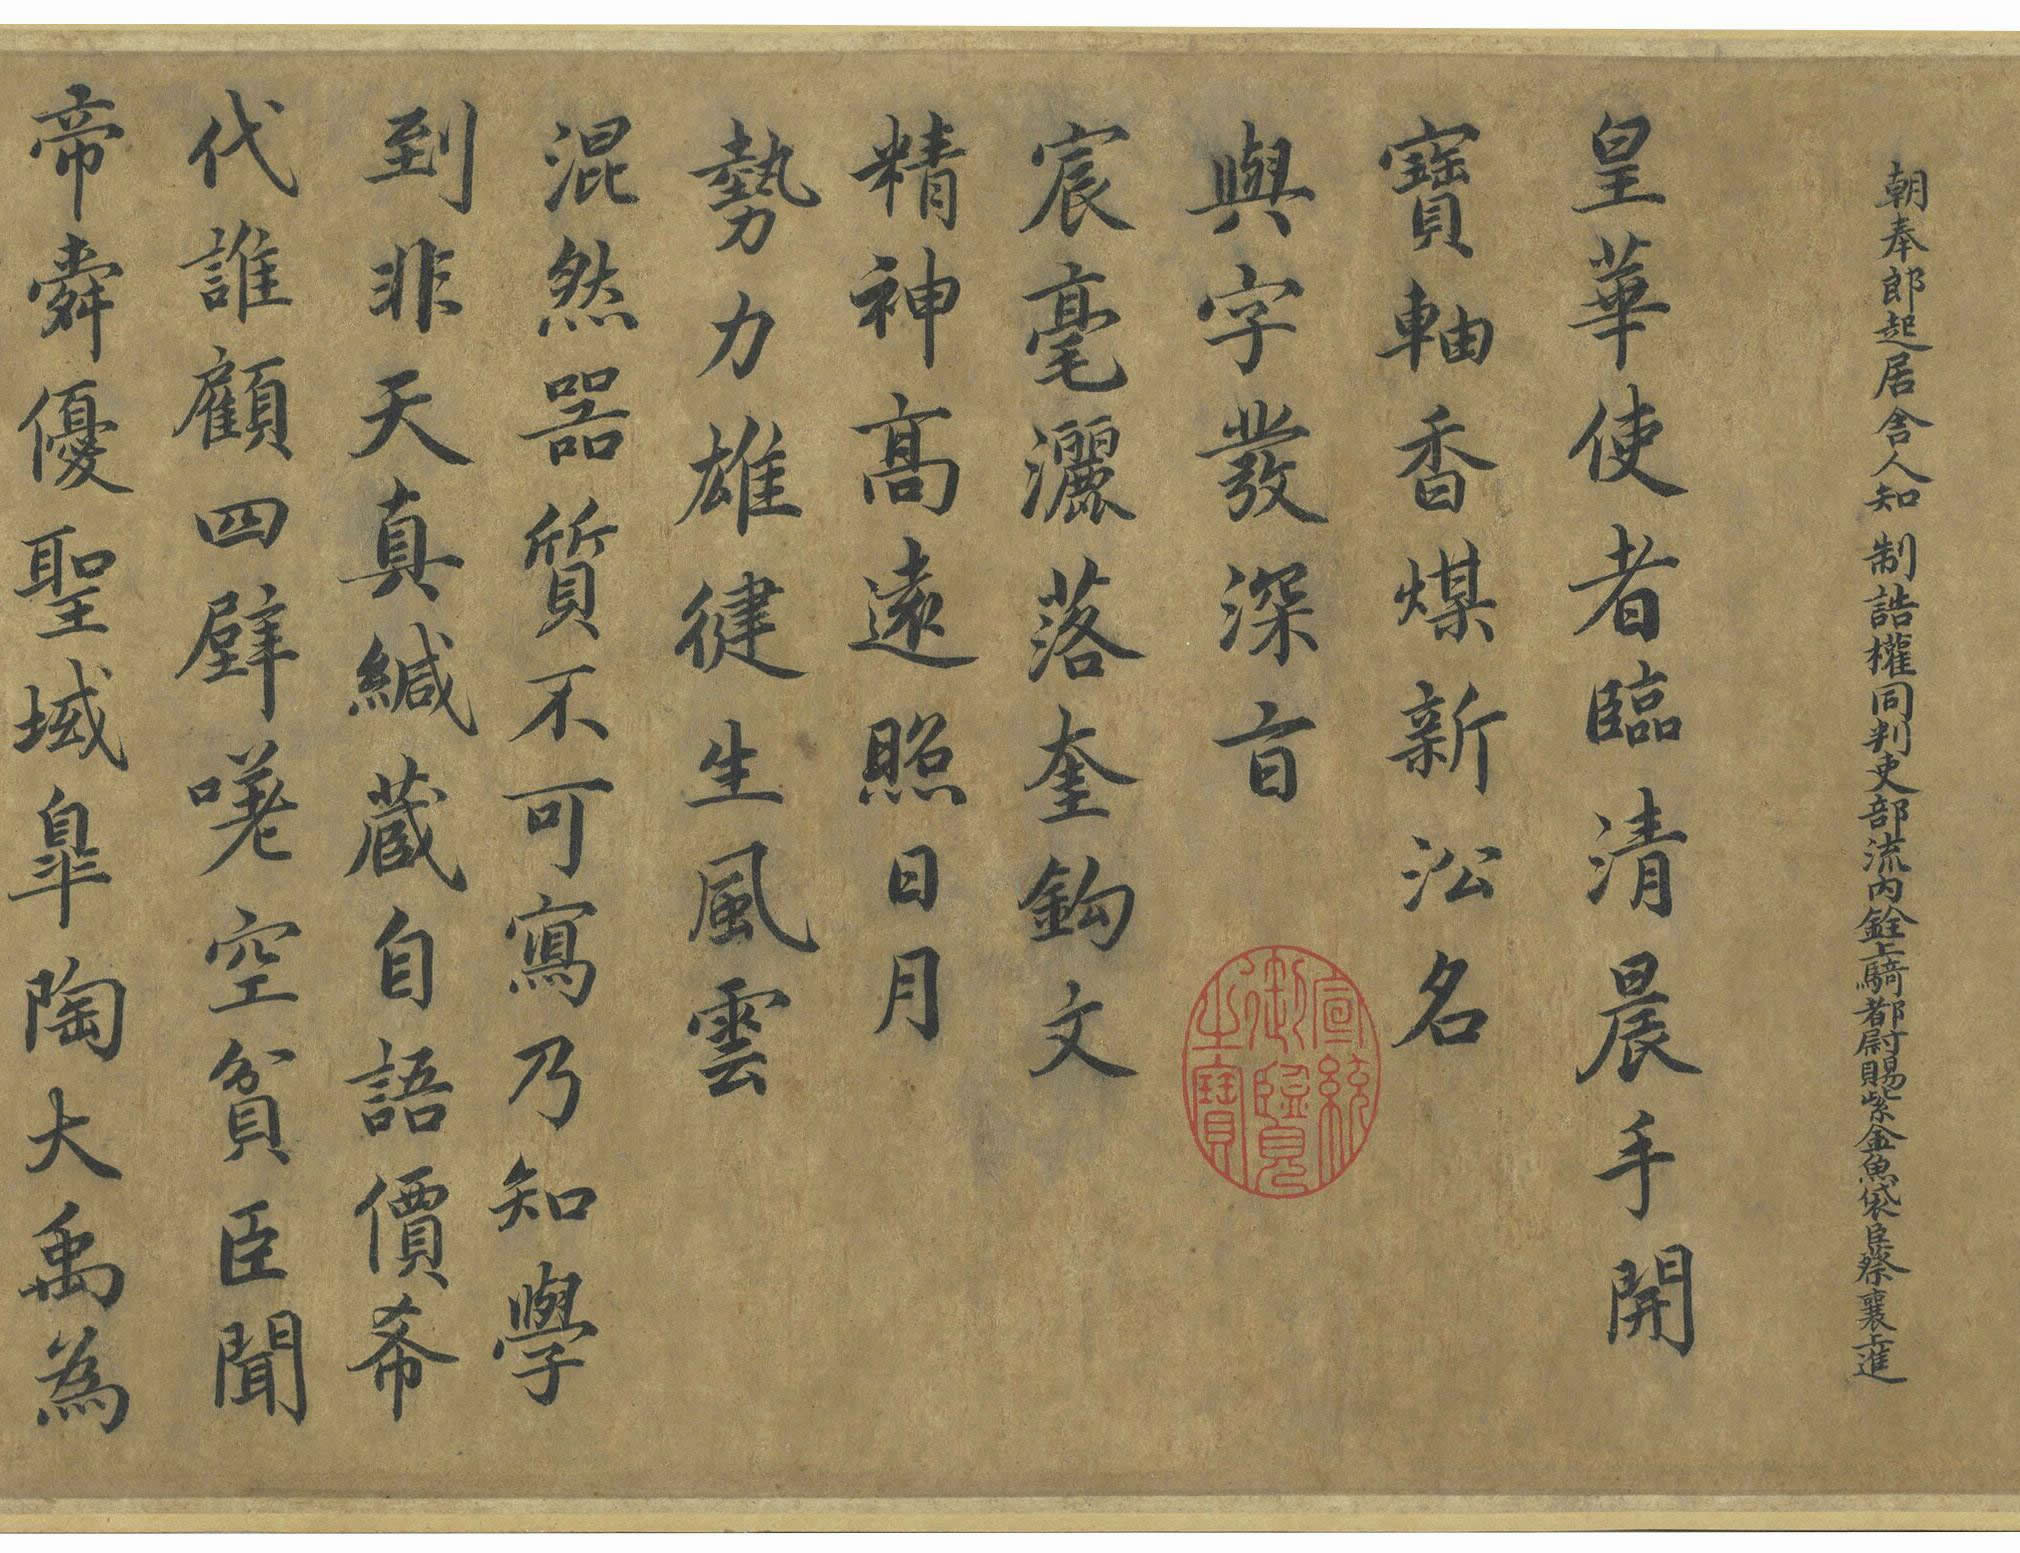 朝奉郎起居舍人知制誥權同判吏部流內銓上騎都尉賜紫金魚袋臣蔡襄上進
皇華使者臨清晨手開
寶軸香煤新沁名
與字發深旨
宸毫灑落奎鈎文
精神高遠照日月
勢力雄徤生風雲
混然器質不可寫乃知學
到非天真緘蔵自語價希
代誰顧四壁嘆空貧臣聞
帝舜優聖域皐陶大禹為
宣統
御覽
之寶